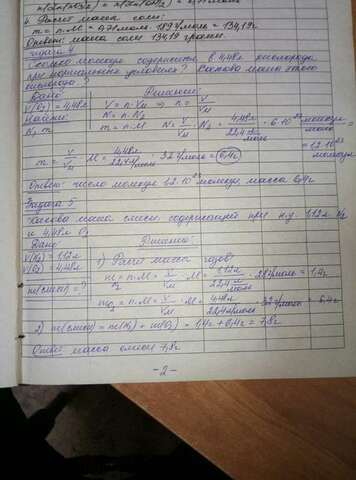 4. Расчет массы соли:
m = n·M = 0,71моль · 189 г/моль = 134,19г
Ответ: масса соли 134,19 грамм.
Задача 4
Сколько молекул содержится в 4,48л кислорода
при нормальных условиях? Какова масса этого
кислорода?
Дано: Решение:
V(O₂) = 4,48л V = n·Vм ⇒ n = V/Vм
Найти: N = n·Nₐ N = V/Vм · Nₐ = 4,48л / 22,4 л/моль · 6·10²³ молекул/моль =
N, m = 1,2·10²³ молекул
m = V/Vм · M = 4,48л / 22,4 л/моль · 32 г/моль = 6,4г
Ответ: число молекул 1,2·10²³ молекул, масса 6,4г
Задача 5
Какова масса смеси, содержащей при н.у. 1,12л N₂
и 4,48л O₂
Дано Решение:
V(N₂) = 1,12л 1) Расчет массы газов:
V(O₂) = 4,48л m = n·M = V/Vм · M = 1,12л / 22,4 л/моль · 28 г/моль = 1,4г
m(смеси) = ?
mO₂ = n·M = V/Vм · M = 4,48л / 22,4 л/моль · 32 г/моль = 6,4г
2) m(смеси) = m(N₂) + m(O₂) = 1,4г + 6,4г = 7,8г
Ответ масса смеси 7,8г
-2-